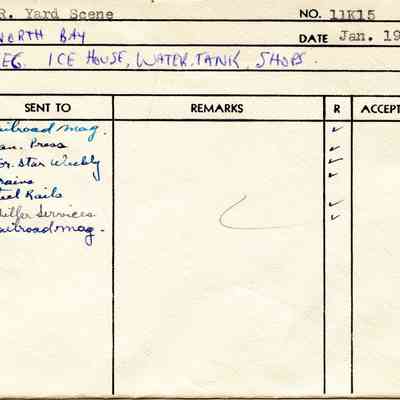 R. Yard Scene NO. 11K15
NORTH BAY DATE Jan. 19
EG. ICE HOUSE, WATER TANK, SHOPS
SENT TO REMARKS R ACCEPT
ailroad mag.
an. Press
or. Star Weekly
rains
eel Rails
ilfer Services
ailroad mag.